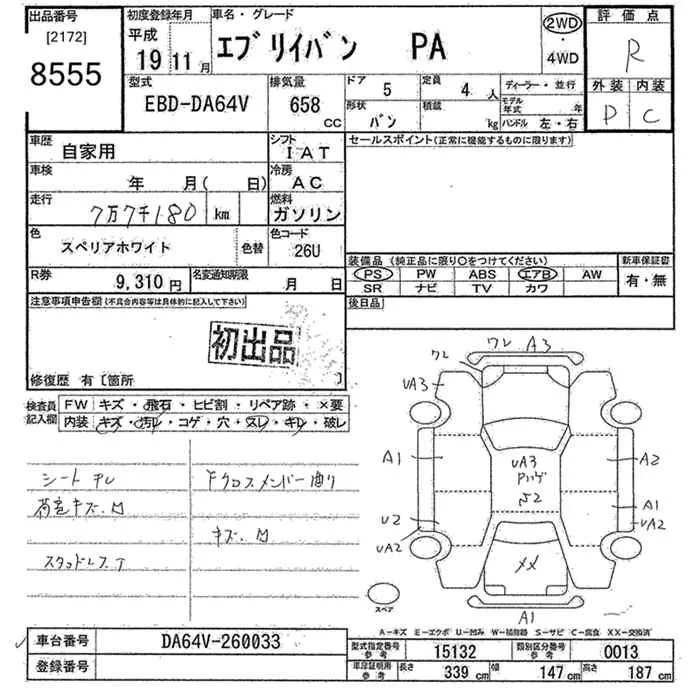 出品番号 初度登録年月 車名・グレード 評価点
[2172] 平成 エブリイバン PA 2WD・4WD R
8555 19 11月
型式 排気量 ドア 5 定員 4人 ディーラー・並行 外装 内装
EBD-DA64V 658 CC 形状 バン 積載 kg モデル年式 年 D C
ハンドル 左・右
車歴 自家用 シフト IAT セールスポイント(正常に機能するものに限ります)
車検 年 月( 日) 冷房 AC
走行 7万7千180 km 燃料 ガソリン
色 スペリアホワイト 色替 色コード 26U
装備品 (純正品に限り○をつけてください) 新車保証書
R券 9,310円 名変通知期限 月 日 PS PW ABS エアB AW 有・無
SR ナビ TV カワ
注意事項申告欄(不具合内容等は具体的に記入して下さい) 後日品
初出品
修復歴 有〔箇所 〕
検査員記入欄 FW キズ・飛石・ヒビ割・リペア跡・×要
内装 キズ・汚レ・コゲ・穴・スレ・キレ・破レ
ワレ A3
ワレ
UA3
A1 UA3 A2
シート
キズ
A1
U2 UA2
UA2
スタッドレス
スペア A1
A-キズ E-エクボ U-凹み W-補修跡 S-サビ C-腐食 XX-交換済
車台番号 DA64V-260033 型式指定番号 参考 15132 類別区分番号 参考 0013
登録番号 車庫証明用 参考 長さ 339 cm 幅 147 cm 高さ 187 cm